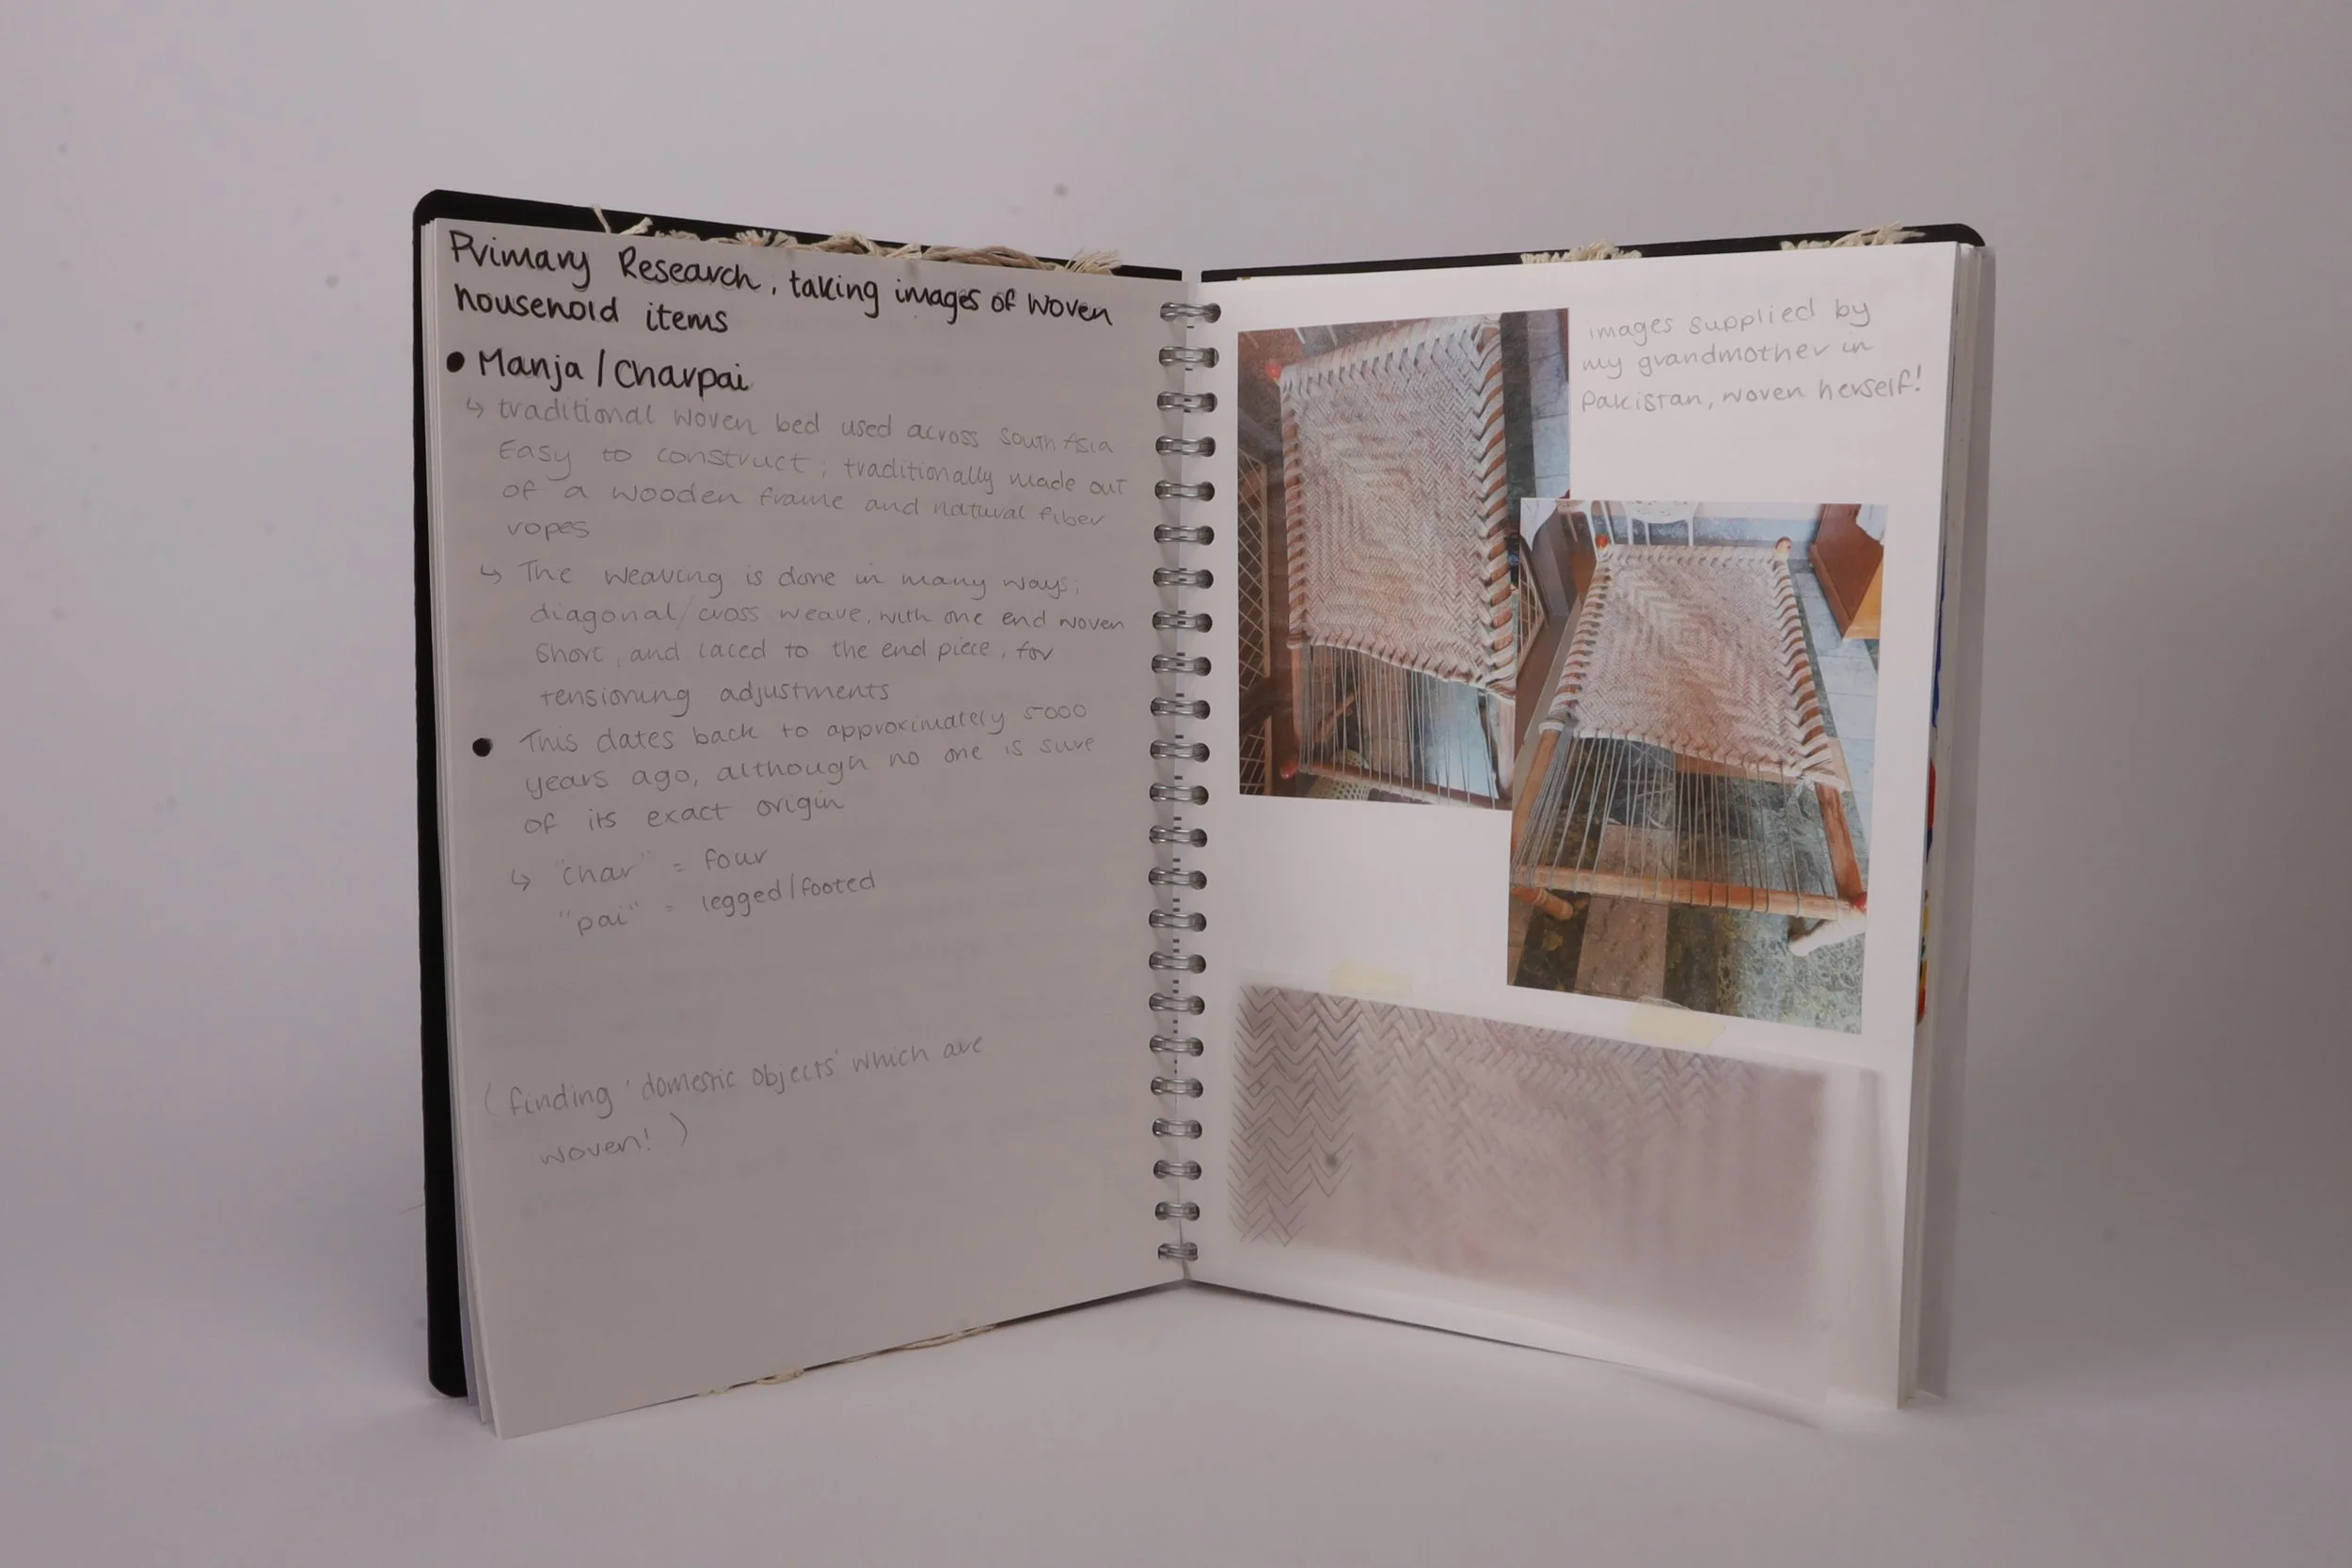 Primary Research, taking images of woven
household items
• Manja / Charpai
↳ traditional woven bed used across South Asia
Easy to construct, traditionally made out
of a wooden frame and natural fiber
ropes
↳ The weaving is done in many ways;
diagonal/cross weave, with one end woven
short, and laced to the end piece, for
tensioning adjustments
• This dates back to approximately 5000
years ago, although no one is sure
of its exact origin
↳ "char" = four
"pai" = legged/footed
(finding 'domestic objects' which are
woven!)
images supplied by
my grandmother in
Pakistan, woven herself!